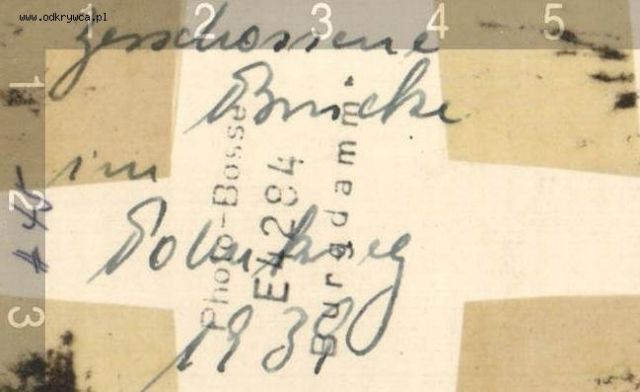 www.odkrywca.pl
1 2 3 4 5
1
2
3
geschossene
Brücke
im
Polenkrieg
1939
Photo-Bosse
E4284
Burgdamm.